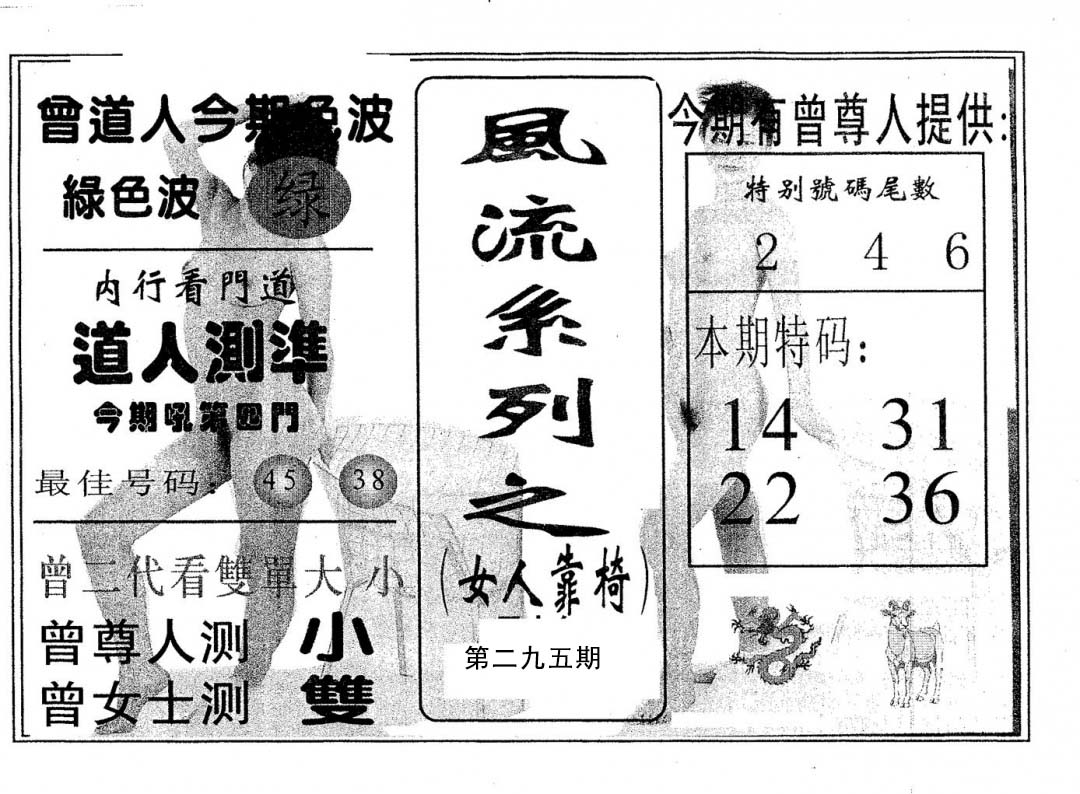 曾道人今期色波
綠色波 绿
内行看門道
道人測準
今期吼第四門
最佳号码: 45 38
曾二代看雙單大小
曾尊人测 小
曾女士测 雙
風流系列之
(女人靠椅)
第二九五期
今期有曾尊人提供:
特别號碼尾數
2 4 6
本期特码:
14 31
22 36